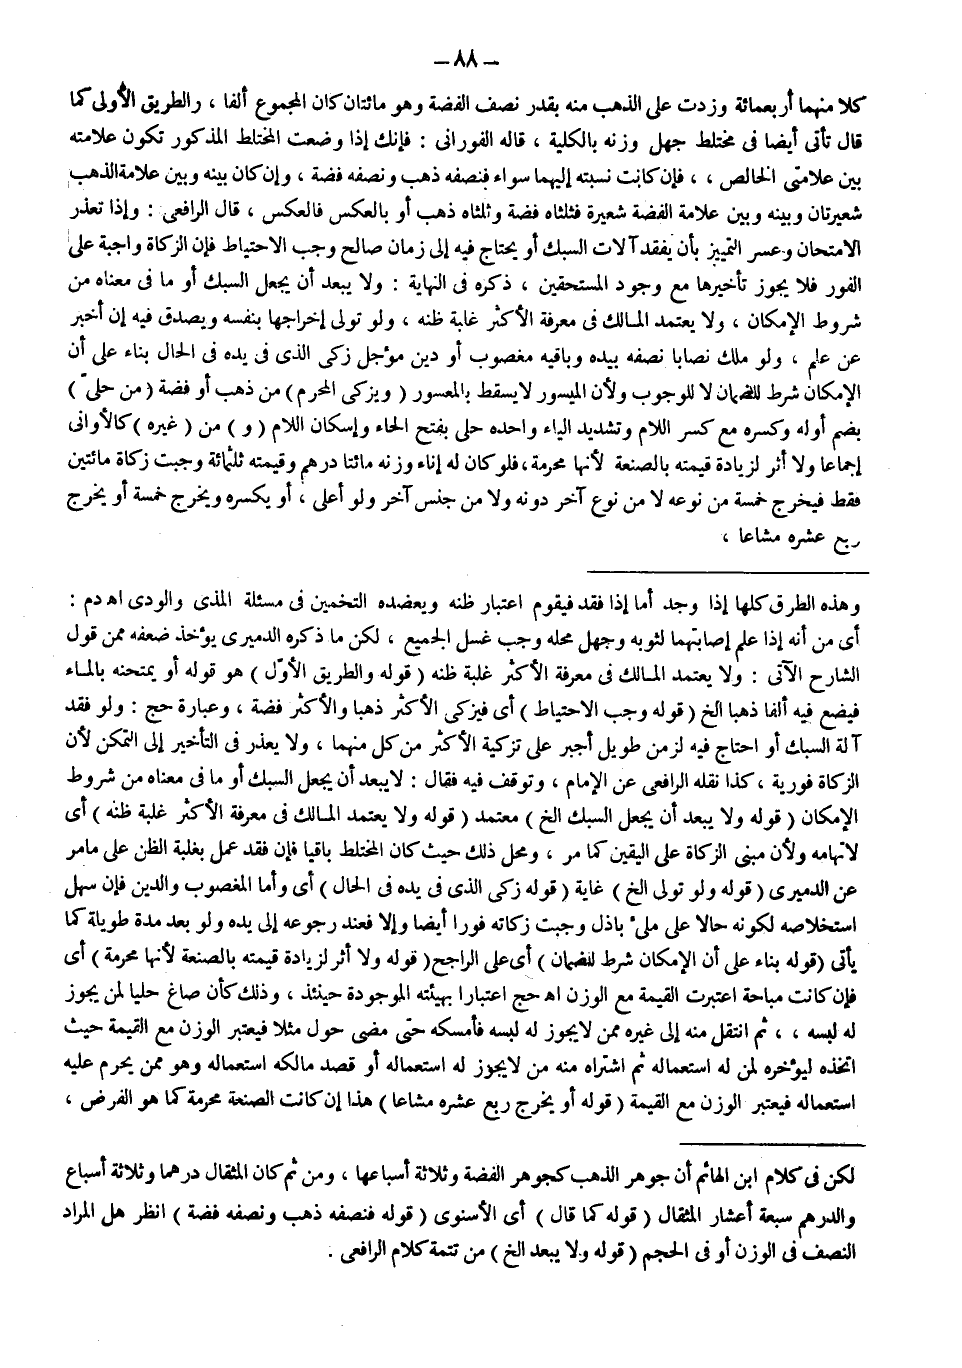 — ٨٨ —
كلا منهما أربعمائة وزدت على الذهب منه بقدر نصف الفضة وهو مائتان كان المجموع ألفا ، والطريق الأولى كما
قال تأتى أيضا فى مختلط جهل وزنه بالكلية ، قاله الفورانى : فإنك إذا وضعت المختلط المذكور تكون علامته
بين علامتى الخالص ، ، فإن كانت نسبته إليهما سواء فنصفه ذهب ونصفه فضة ، وإن كان بينه وبين علامة الذهب
شعيرتان وبينه وبين علامة الفضة شعيرة فثلثاه فضة وثلثاه ذهب أو بالعكس فالعكس ، قال الرافعى : وإذا تعذر
الامتحان وعسر التمييز بأن يفقد آلات السبك أو يحتاج فيه إلى زمان صالح وجب الاحتياط فإن الزكاة واجبة على
الفور فلا يجوز تأخيرها مع وجود المستحقين ، ذكره فى النهاية : ولا يبعد أن يجعل السبك أو ما فى معناه من
شروط الإمكان ، ولا يعتمد المالك فى معرفة الأكثر غابة ظنه ، ولو تولى إخراجها بنفسه ويصدق فيه إن أخبر
عن علم ، ولو ملك نصابا نصفه بيده وباقيه مغصوب أو دين مؤجل زكى الذى فى يده فى الحال بناء على أن
الإمكان شرط للضمان لا للوجوب ولأن الميسور لايسقط بالمعسور ( ويزكى المحرم ) من ذهب أو فضة ( من حلىّ )
بضم أوله وكسره مع كسر اللام وتشديد الياء واحده حلى بفتح الحاء وإسكان اللام ( و ) من ( غيره ) كالأوانى
إجماعا ولا أثر لزيادة قيمته بالصنعة لأنها محرمة ، فلو كان له إناء وزنه مائتا درهم وقيمته ثلثمائة وجبت زكاة مائتين
فقط فيخرج خمسة من نوعه لا من نوع آخر دونه ولا من جنس آخر ولو أعلى ، أو يكسره ويخرج خمسة أو يخرج
ربع عشره مشاعا ،
وهذه الطرق كلها إذا وجد أما إذا فقد فيقوم اعتبار ظنه ويعضده التخمين فى مسئلة المذى والودى اهـ دم :
أى من أنه إذا علم إصابتهما لثوبه وجهل محله وجب غسل الجميع ، لكن ما ذكره الدميرى يؤخذ ضعفه ممن قول
الشارح الآتى : ولا يعتمد المالك فى معرفة الأكثر غلبة ظنه ( قوله والطريق الأوّل ) هو قوله أو يمتحنه بالماء
فيضع فيه ألفا ذهبا الخ ( قوله وجب الاحتياط ) أى فيزكى الأكثر ذهبا والأكثر فضة ، وعبارة حج : ولو فقد
آلة السبك أو احتاج فيه لزمن طويل أجبر على تزكية الأكثر من كل منهما ، ولا يعذر فى التأخير إلى التمكن لأن
الزكاة فورية ، كذا نقله الرافعى عن الإمام ، وتوقف فيه فقال : لايبعد أن يجعل السبك أو ما فى معناه من شروط
الإمكان ( قوله ولا يبعد أن يجعل السبك الخ ) معتمد ( قوله ولا يعتمد المالك فى معرفة الأكثر غلبة ظنه ) أى
لاتهامه ولأن مبنى الزكاة على اليقين كما مر ، ومحل ذلك حيث كان المختلط باقيا فإن فقد عمل بغلبة الظن على مامر
عن الدميرى ( قوله ولو تولى الخ ) غاية ( قوله زكى الذى فى يده فى الحال ) أى وأما المغصوب والدين فإن سهل
استخلاصه لكونه حالا على ملىء باذل وجبت زكاته فورا أيضا وإلا فعند رجوعه إلى يده ولو بعد مدة طويلة كما
يأتى ( قوله بناء على أن الإمكان شرط للضمان ) أى على الراجح ( قوله ولا أثر لزيادة قيمته بالصنعة لأنها محرمة ) أى
فإن كانت مباحة اعتبرت القيمة مع الوزن اهـ حج اعتبارا بهيئته الموجودة حينئذ ، وذلك كأن صاغ حليا لمن يجوز
له لبسه ، ، ثم انتقل منه إلى غيره ممن لايجوز له لبسه فأمسكه حتى مضى حول مثلا فيعتبر الوزن مع القيمة حيث
اتخذه ليؤخره لمن له استعماله ثم اشتراه منه من لايجوز له استعماله أو قصد مالكه استعماله وهو ممن يحرم عليه
استعماله فيعتبر الوزن مع القيمة ( قوله أو يخرج ربع عشره مشاعا ) هذا إن كانت الصنعة محرمة كما هو الفرض ،
لكن فى كلام ابن الهائم أن جوهر الذهب كجوهر الفضة وثلاثة أسباعها ، ومن ثم كان المثقال درهما وثلاثة أسباع
والدرهم سبعة أعشار المثقال ( قوله كما قال ) أى الأسنوى ( قوله فنصفه ذهب ونصفه فضة ) انظر هل المراد
النصف فى الوزن أو فى الحجم ( قوله ولا يبعد الخ ) من تتمة كلام الرافعى .